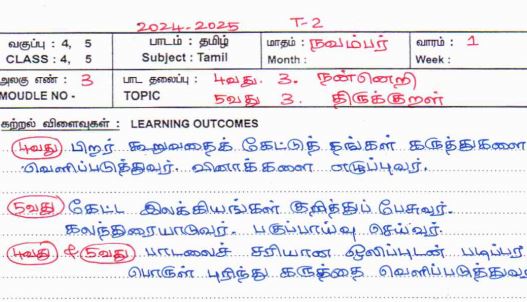 2024-2025 T-2
வகுப்பு : 4, 5 பாடம் : தமிழ் மாதம் : நவம்பர் வாரம் : 1
CLASS : 4, 5 Subject : Tamil Month : Week :
அலகு எண் : 3 பாட தலைப்பு : 4வது. 3. நன்னெறி
MOUDLE NO - TOPIC 5வது 3. திருக்குறள்
கற்றல் விளைவுகள் : LEARNING OUTCOMES
4வது பிறர் கூறுவதைக் கேட்டுத் தங்கள் கருத்துகளை
வெளிப்படுத்துவர். வினாக்களை எழுப்புவர்.
5வது கேட்ட இலக்கியங்கள் குறித்துப் பேசுவர்.
கலந்துரையாடுவர். பகுப்பாய்வு செய்வர்.
4வது & 5வது பாடலைச் சரியான ஒலிப்புடன் படிப்பர்
பொருள் புரிந்து கருத்தை வெளிப்படுத்துவ